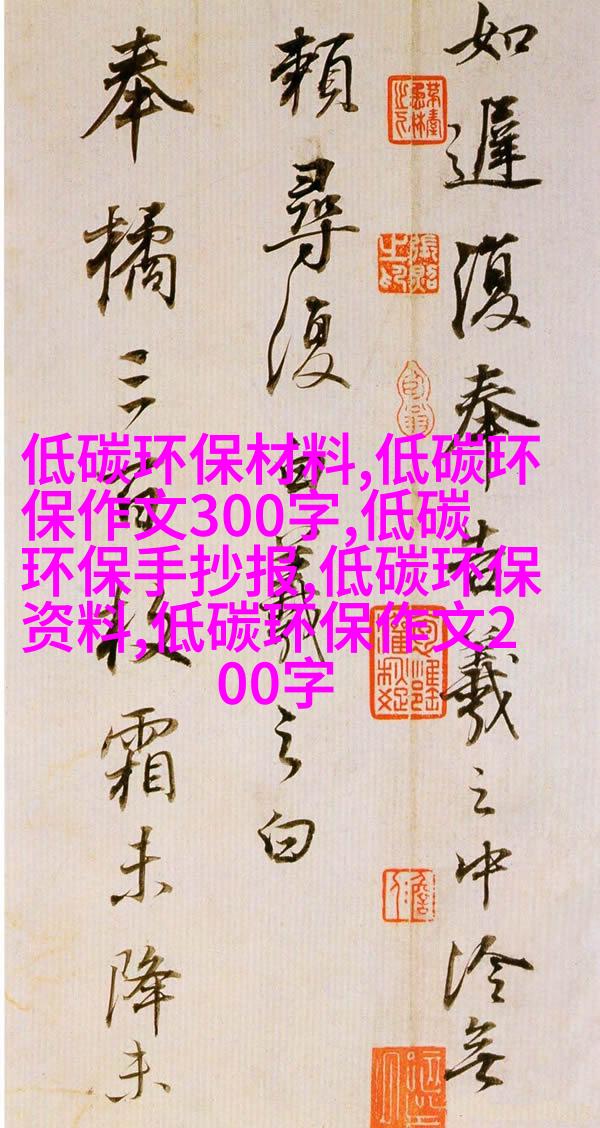 如遲復奉告羲之中冷無
賴尋復白羲之白
奉橘三百枚霜未降未
低碳环保材料,低碳环
保作文300字,低碳
环保手抄报,低碳环保
资料,低碳环保作文2
00字